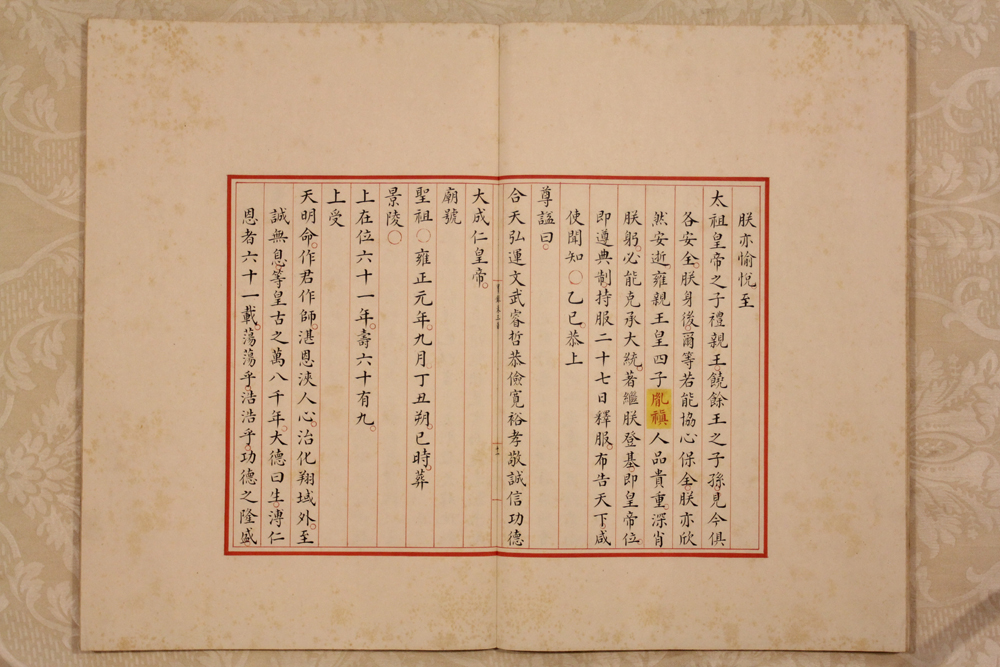 朕亦愉悅至
太祖皇帝之子禮親王。饒餘王之子孫。見今俱
各安全。朕身後爾等若能協心保全。朕亦欣
然安逝。雍親王皇四子胤禛人品貴重。深肖
朕躬。必能克承大統。著繼朕登基。即皇帝位。
即遵典制。持服二十七日釋服。布告天下。咸
使聞知〇乙巳。恭上
尊謚曰。
合天弘運文武睿哲恭儉寬裕孝敬誠信功德
大成仁皇帝。
廟號
聖祖〇雍正元年。九月。丁丑朔。巳時。葬
景陵〇
上在位六十一年。壽六十有九。
上受
天明命。作君作師。湛恩浹人心。治化翔域外。至
誠無息。等皇古之萬八千年。大德曰生。溥仁
恩者六十一載。蕩蕩乎。浩浩乎。功德之隆盛。